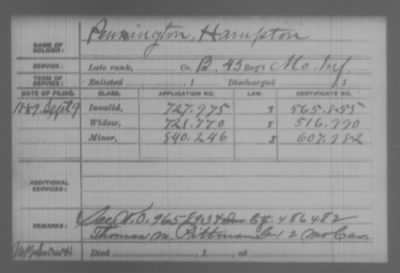 NAME OF SOLDIER: Pennington, Hampton
SERVICE: Late rank, Co. B, 43 Reg't Mo. Inf.
TERM OF SERVICE: Enlisted , 1 Discharged , 1
DATE OF FILING. CLASS. APPLICATION NO. LAW. CERTIFICATE NO.
Sept 9 Invalid, 727.975 565.855
Widow, 721.770 516.770
Minor, 840.246
ADDITIONAL SERVICES:
REMARKS: 486482
Thomas M. Pittman 12 Mo Cav.
Died , 1 , at